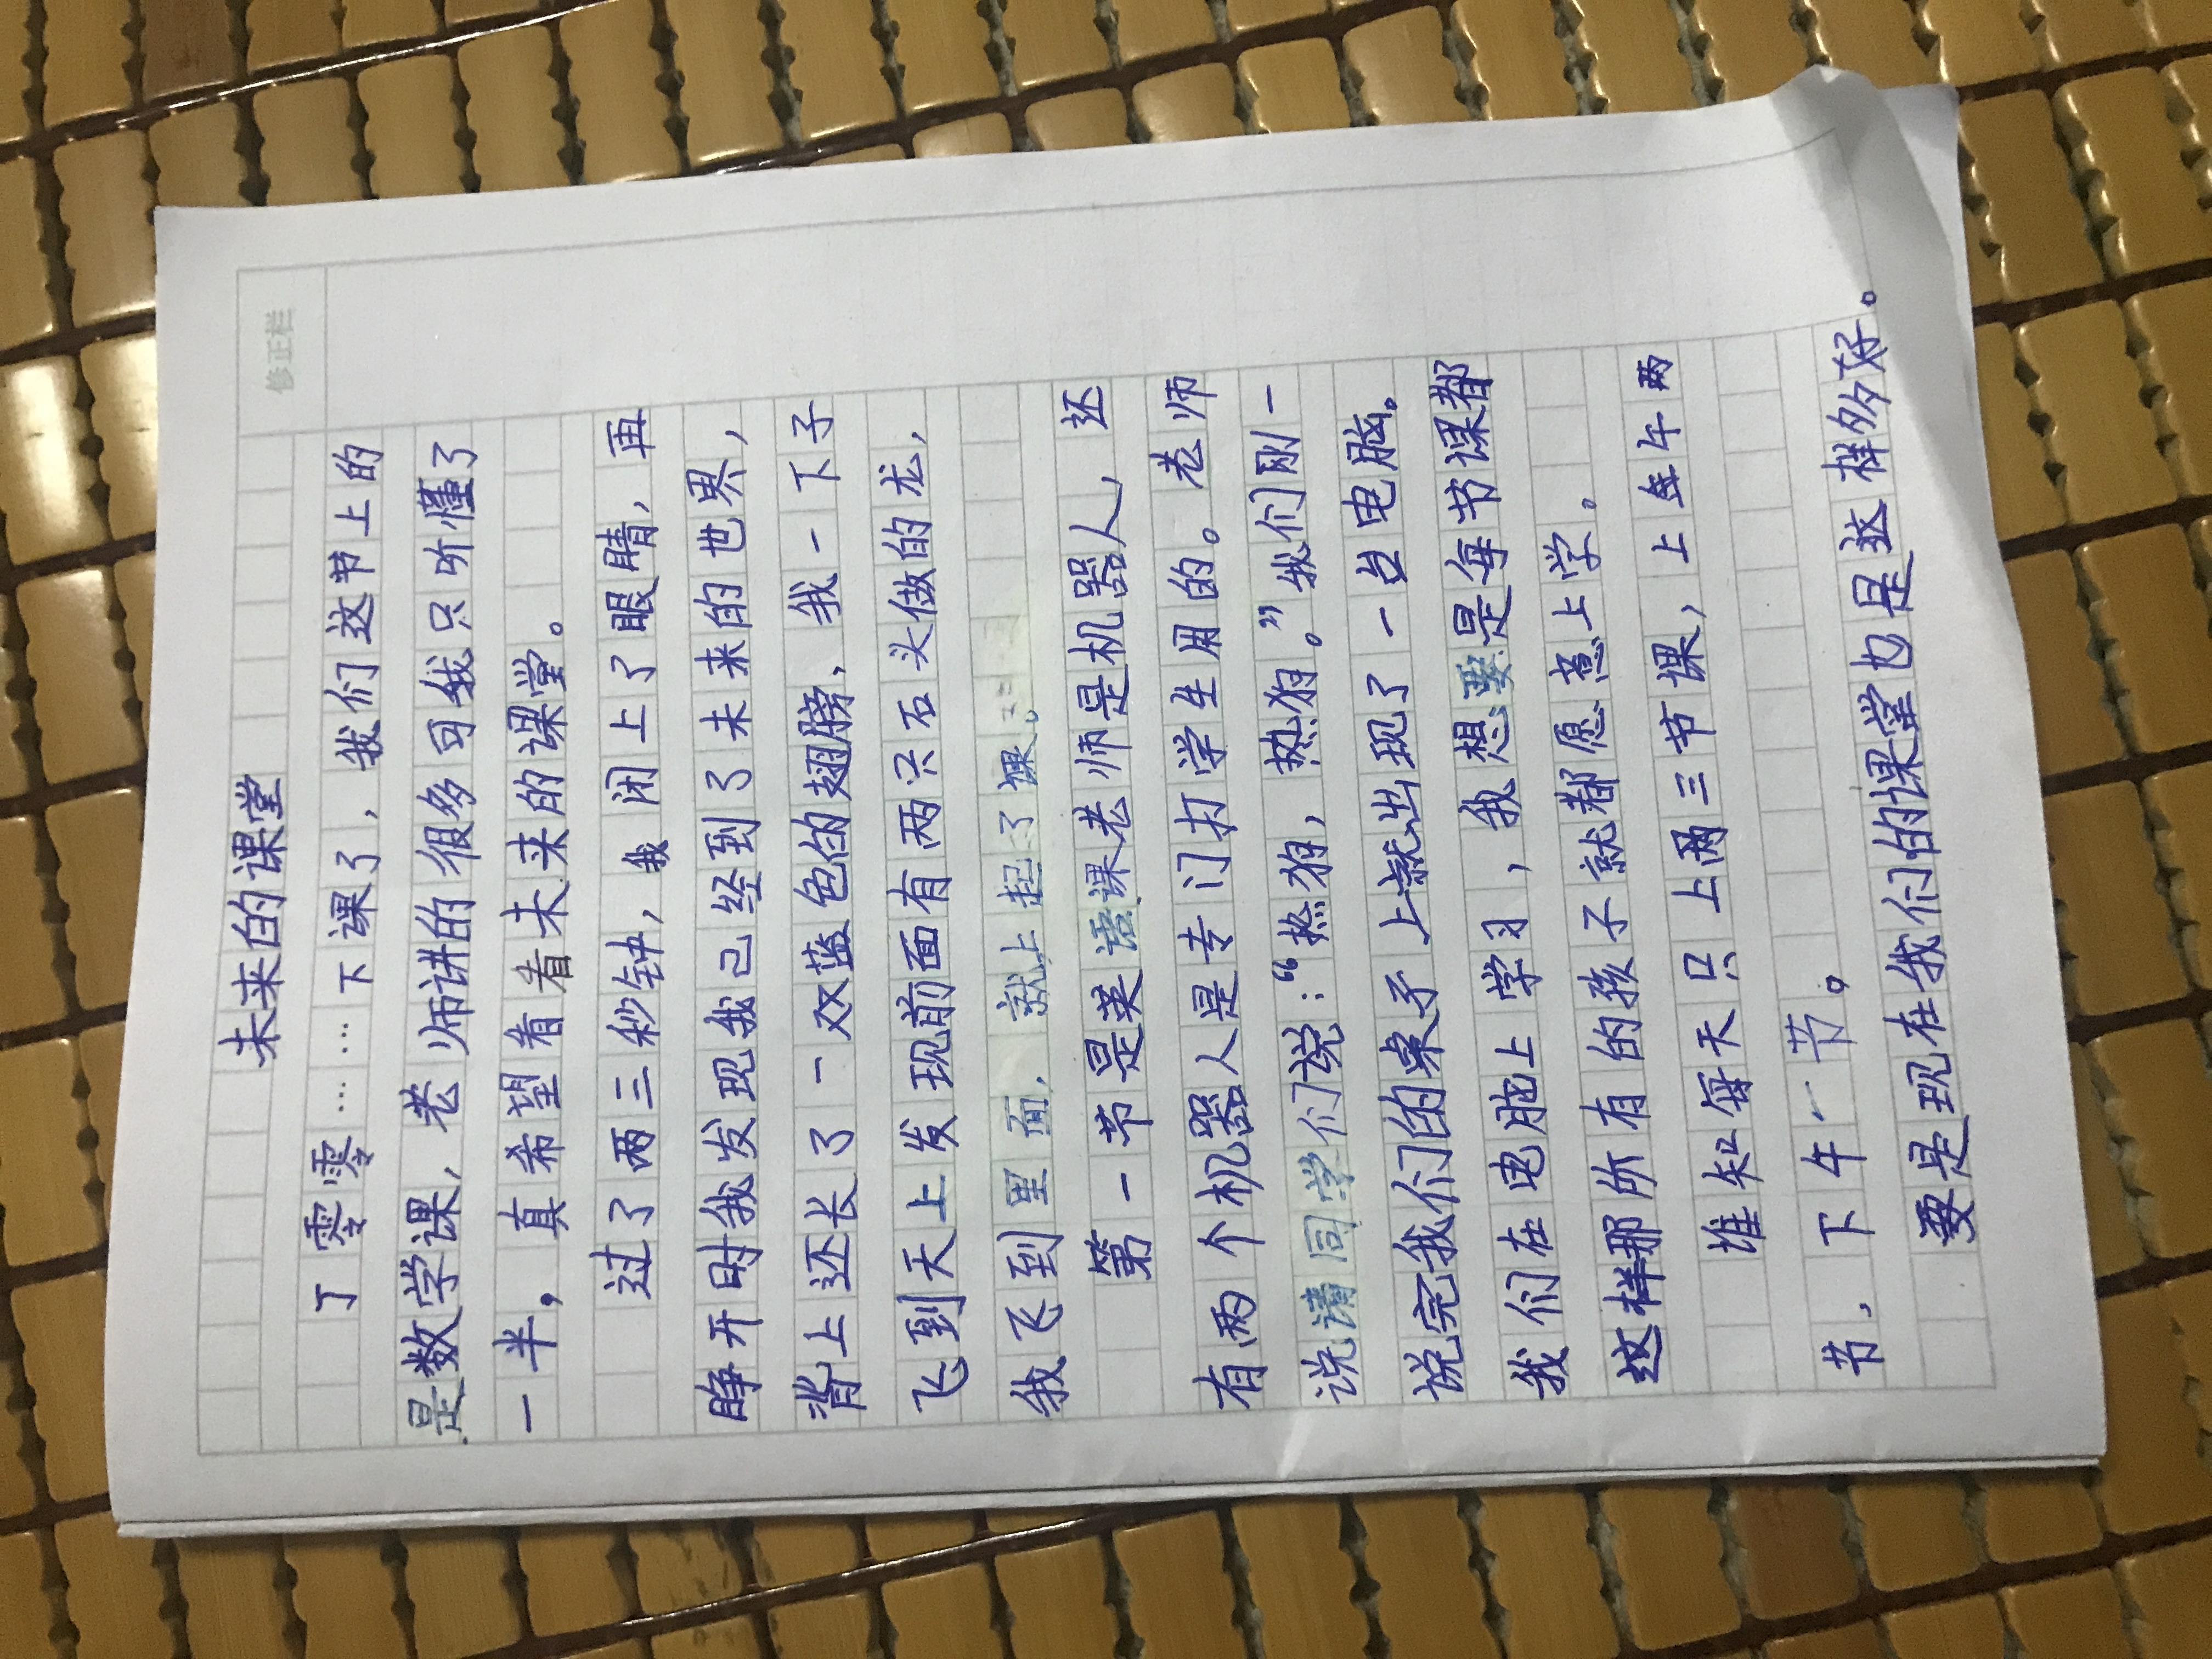 修正栏
未来的课堂
丁零零……下课了，我们这节上的
是数学课，老师讲的很多可我只听懂了
一半，真希望看看未来的课堂。
过了两三秒钟，我闭上了眼睛，再
睁开时我发现我已经到了未来的世界，
背上还长了一双蓝色的翅膀，我一下子
飞到天上发现前面有两只石头做的龙，
我飞到里面，就上起了课。
第一节是英语课老师是机器人，还
有两个机器人是专门打学生用的。老师
说请同学们说：“热狗，热狗。”我们刚一
说完我们的桌子上就出现了一台电脑。
我们在电脑上学习，我想要是每节课都
这样那所有的孩子就都愿意上学。
谁知每天只上两三节课，上午两
节，下午一节。
要是现在我们的课堂也是这样多好。